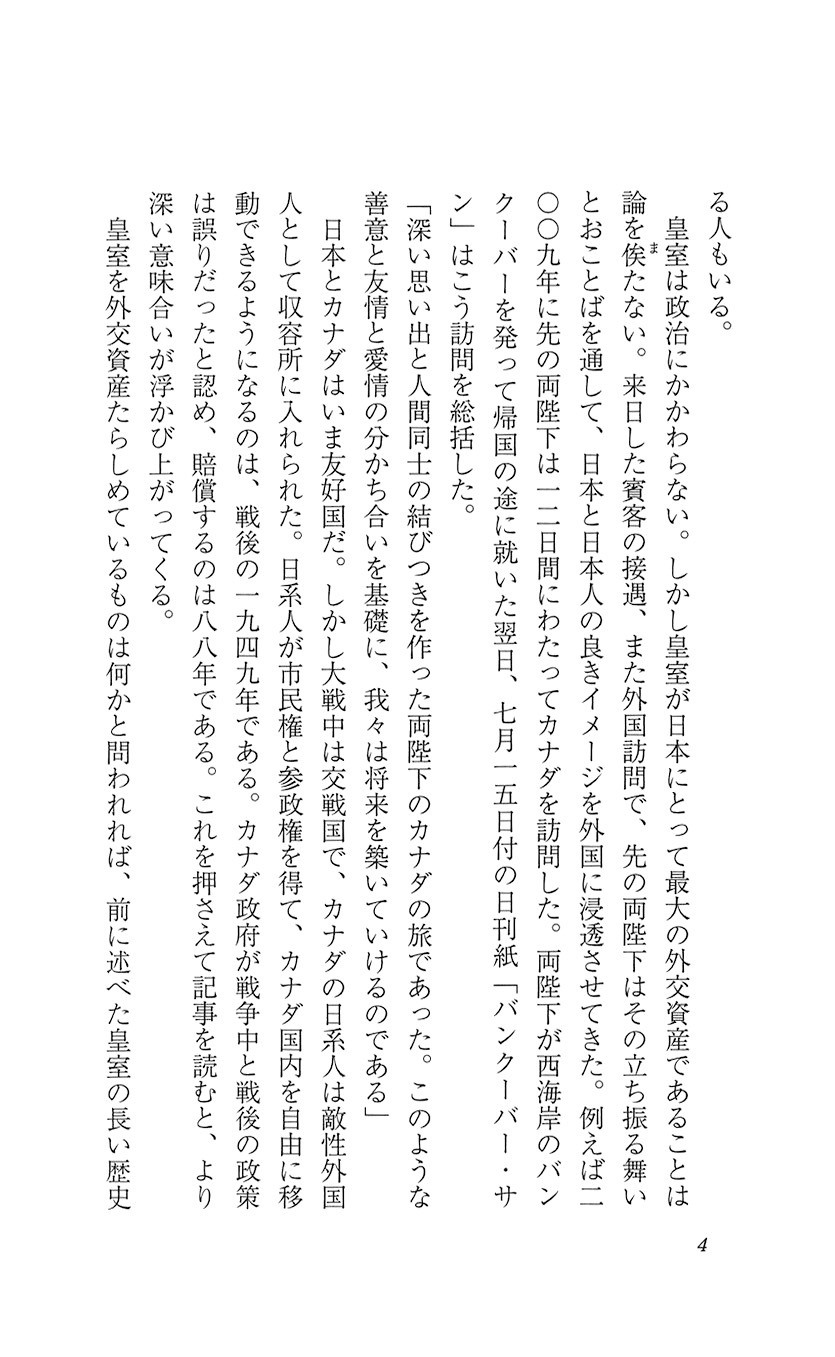 る人もいる。
　皇室は政治にかかわらない。しかし皇室が日本にとって最大の外交資産であることは
論を俟たない。来日した賓客の接遇、また外国訪問で、先の両陛下はその立ち振る舞い
とおことばを通して、日本と日本人の良きイメージを外国に浸透させてきた。例えば二
〇〇九年に先の両陛下は一二日間にわたってカナダを訪問した。両陛下が西海岸のバン
クーバーを発って帰国の途に就いた翌日、七月一五日付の日刊紙「バンクーバー・サ
ン」はこう訪問を総括した。
「深い思い出と人間同士の結びつきを作った両陛下のカナダの旅であった。このような
善意と友情と愛情の分かち合いを基礎に、我々は将来を築いていけるのである」
　日本とカナダはいま友好国だ。しかし大戦中は交戦国で、カナダの日系人は敵性外国
人として収容所に入れられた。日系人が市民権と参政権を得て、カナダ国内を自由に移
動できるようになるのは、戦後の一九四九年である。カナダ政府が戦争中と戦後の政策
は誤りだったと認め、賠償するのは八八年である。これを押さえて記事を読むと、より
深い意味合いが浮かび上がってくる。
　皇室を外交資産たらしめているものは何かと問われれば、前に述べた皇室の長い歴史
ま
4